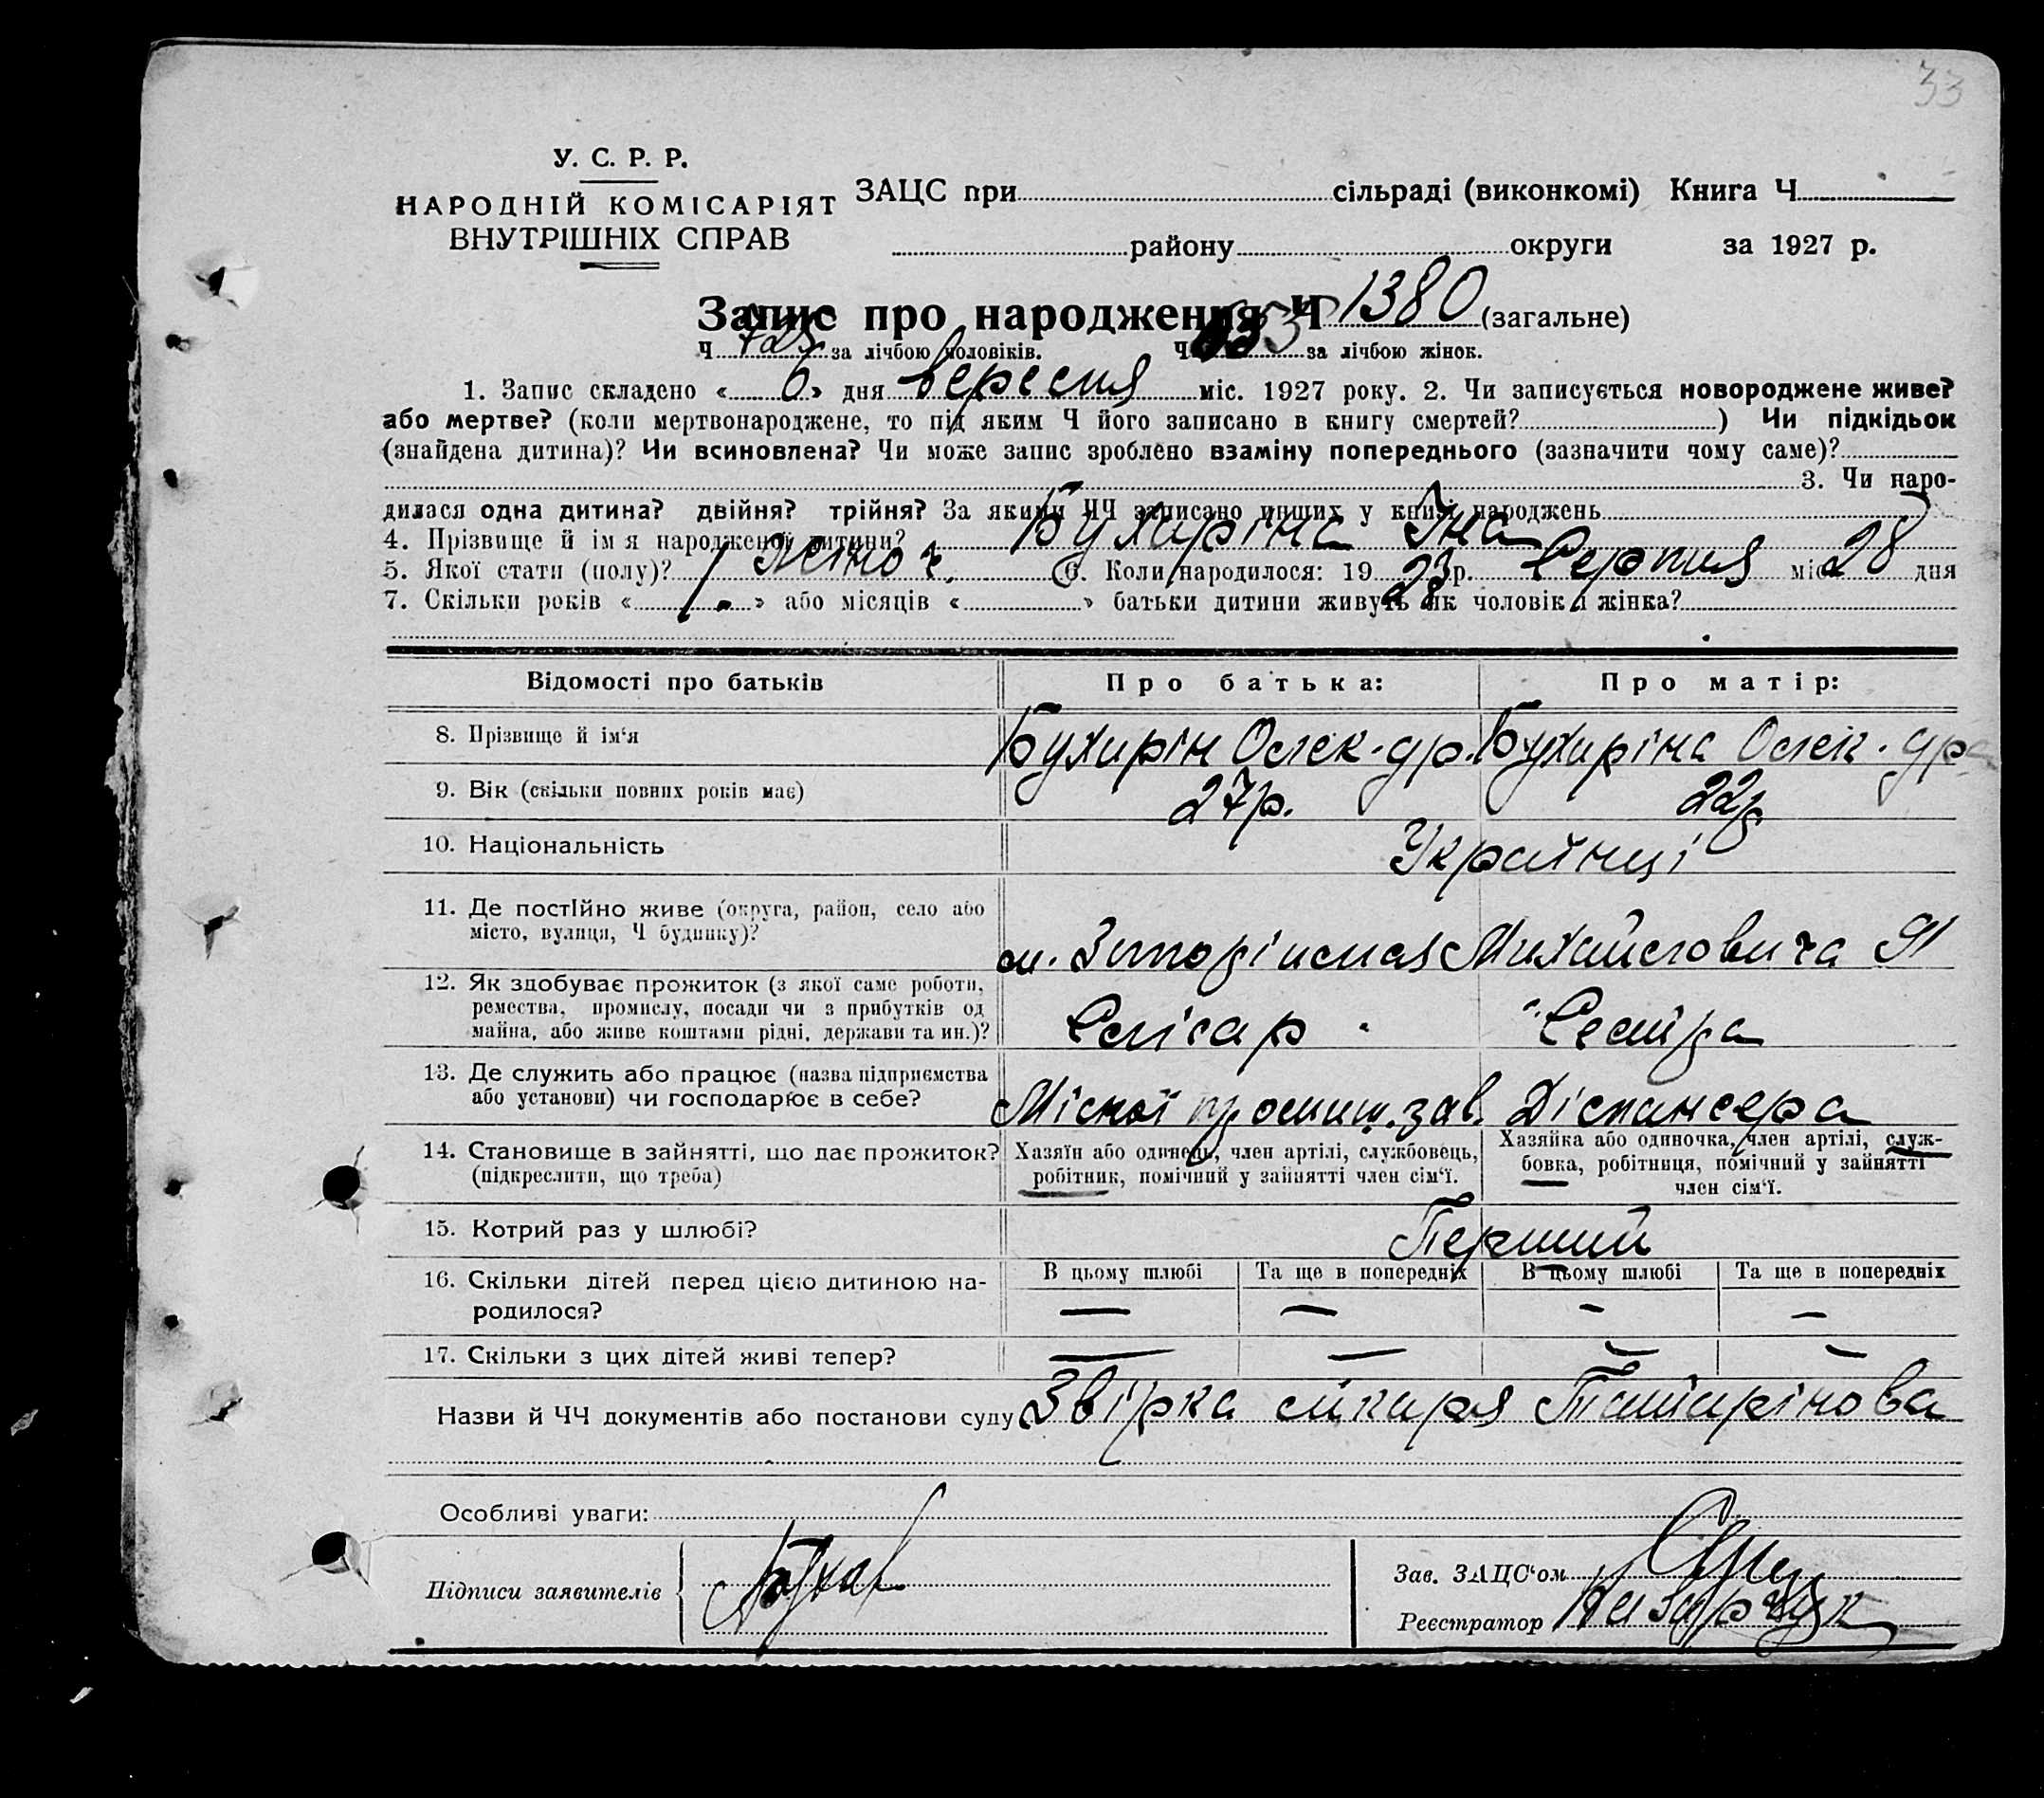 33
У. С. Р. Р.
НАРОДНІЙ КОМІСАРІЯТ
ВНУТРІШНІХ СПРАВ
ЗАЦС при сільраді (виконкомі) Книга Ч
району округи за 1927 р.
Запис про народження Ч 1380 (загальне)
Ч за лічбою чоловіків. Ч за лічбою жінок.
1. Запис складено « 6 » дня вересня міс. 1927 року. 2. Чи записується новороджене живе?
або мертве? (коли мертвонароджене, то під яким Ч його записано в книгу смертей? ) Чи підкідьок
(знайдена дитина)? Чи всиновлена? Чи може запис зроблено взаміну попереднього (зазначити чому саме)?
3. Чи наро-
дилася одна дитина? двійня? трійня? За якими ЧЧ записано инших у книзі народжень
4. Прізвище й ім я народженої дитини? Бухаріна Іна
5. Якої стати (полу)? Жіноч. 6. Коли народилося: 19 р. Серпня міс. 28 дня
7. Скільки років « 1 » або місяців « » батьки дитини живуть як чоловік і жінка?
Відомості про батьків Про батька: Про матір:
8. Прізвище й ім‘я Бухарін Олек-др. Бухаріна Олек-дра
9. Вік (скільки повних років має) 27р. 22р
10. Національність Українці
11. Де постійно живе (округа, район, село або
місто, вулиця, Ч будинку)? Михайловича
12. Як здобуває прожиток (з якої саме роботи,
ремества, промислу, посади чи з прибутків од
майна, або живе коштами рідні, держави та ин.)? Слісар Сестра
13. Де служить або працює (назва підприємства
або установи) чи господарює в себе? Міської промиш. зав. Діспансера
14. Становище в зайнятті, що дає прожиток?
(підкреслити, що треба)
Хазяїн або одинець, член артілі, службовець,
робітник, помічний у зайнятті член сім‘ї.
Хазяйка або одиночка, член артілі, служ-
бовка, робітниця, помічний у зайнятті
член сім‘ї.
15. Котрий раз у шлюбі? Перший
16. Скільки дітей перед цією дитиною на-
родилося?
В цьому шлюбі Та ще в попередніх В цьому шлюбі Та ще в попередніх
— — — —
17. Скільки з цих дітей живі тепер? — — — —
Назви й ЧЧ документів або постанови суду Звірка лікаря Татарінова
Особливі уваги:
Підписи заявителів
Зав. ЗАЦС‘ом
Реєстратор